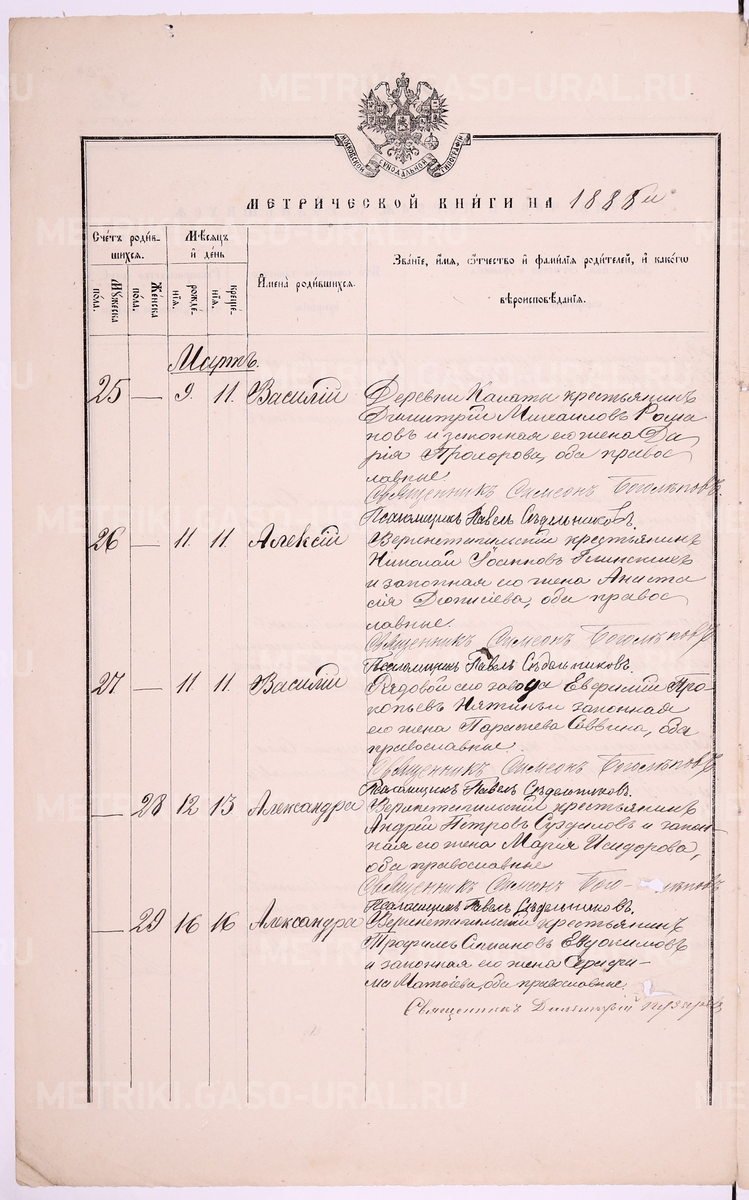 METRIKI.GASO-URAL.RU
МОСКОВСКОЙ СѴНОДАЛЬНОЙ ТИПОГРАФІИ
МЕТРИЧЕСКОЙ КНИГИ НА 1888й
Счетъ родившихся.
Мѣсяцъ и день
Имена родившихся.
Званіе, имя, отчество и фамилія родителей, и какогѡ вѣроисповѣданія.
Мужеска пола.
Женска пола.
рожденія.
крещенія.
Мартъ.
25 — 9. 11. Василій
Деревни Калаты крестьянинъ
Димитрій Михаиловъ Рома
новъ и законная его жена Да
рія Прохорова, оба правос
лавные.
Священникъ Симеонъ Боголѣповъ.
Псаломщикъ Павелъ Сѣдельниковъ.
26 — 11. 11. Алексій
Верхнетагильскій крестьянинъ
Николай Іоанновъ
и законная его жена Анаста
сія Діонисіева, оба правос
лавные.
Священникъ Симеонъ Боголѣповъ
Псаломщикъ Павелъ Сѣдельниковъ.
27 — 11. 11. Василій
Рядовой его завода Евфимій Про-
копьевъ и законная
его жена Параскева Саввина, оба
православные.
Священникъ Симеонъ Боголѣповъ
Псаломщикъ Павелъ Сѣдельниковъ.
— 28 12 13 Александра
Верхнетагильскій крестьянинъ
Андрей Петровъ Суздаловъ и закон-
ная его жена Марія Исидорова,
оба православные
Священникъ Симеонъ Бого- лѣповъ
Псаломщикъ Павелъ Сѣдельниковъ.
— 29 16 16 Александра
Верхнетагильскій крестьянинъ
Трофимъ Евдокимовъ
и законная его жена Серафи-
ма Матѳіева, оба православные.
Священникъ Димитрій
METRIKI.GASO-URAL.RU